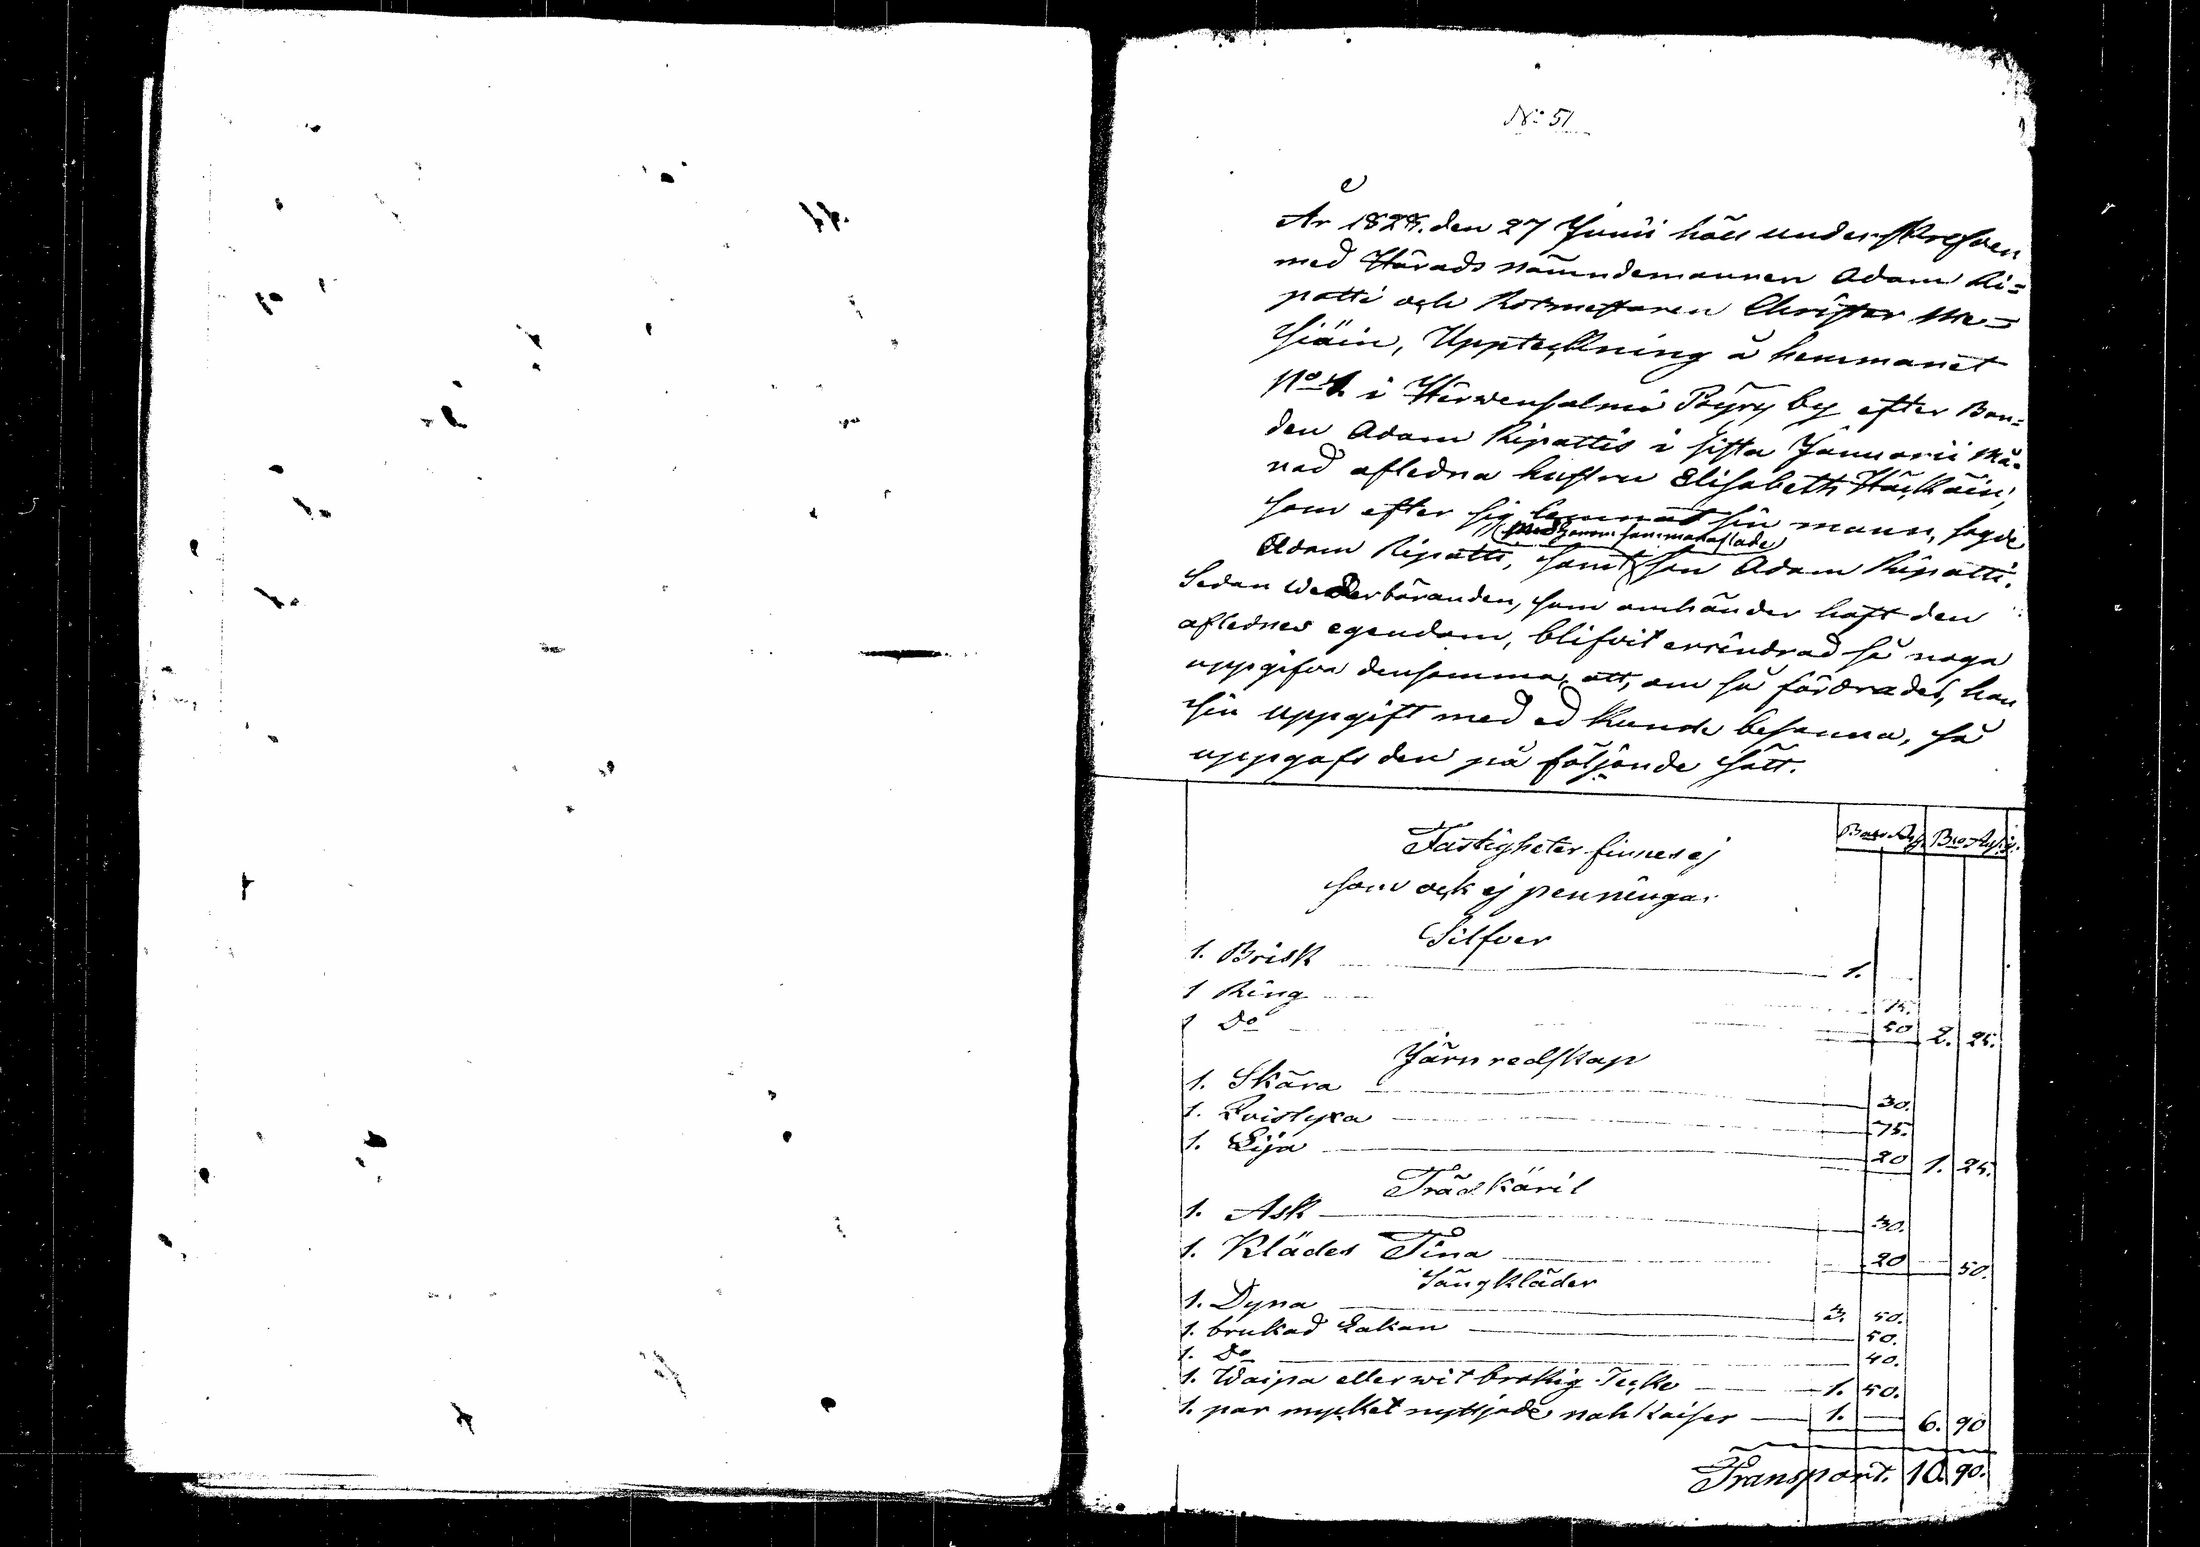 No 51
År 1828. den 27 Junii höll underskrefven
med Härads nämndemannen Adam Ri=
patti och Rotmestaren Christer
Uppteckning å hemmanet
No 4 i Hirwensalmi Pöyry by efter Bon=
den Adam Ripattis i sista Januarii Må=
nad aflidna hustru Elisabeth
som efter sig lemnat sin mann, sagde
med honom sammanaflade
Adam Ripatti, samt son Adam Ripatti.
Sedan wederböranden, som omhänder haft den
aflednes egendom, blifvit errindrad så noga
uppgifva densamma, att, om så fördrades, han
sin uppgift med ed kunde besanna, så
uppgafs den på följande sätt.
Bco Ass. Bco Ass.
Fastigheter finnes ej
som ock ej penningar
Silfver
1. Brisk 1.
1 Ring 75.
1 Do 50 2. 25.
Järnredskap
1. Skära 30.
1. Qvistyxa 75.
1. Lija 20 1. 25.
Trädkäril
1. Ask 30.
1. Klädes Tina 20 50.
Sängkläder
1. Dyna 3. 50.
1. brukad Lakan 50.
1. Do 40.
1. Waipa eller wit brokig Täcke 1. 50.
1. par mycket nyttjade nahkaiser 1. 6. 90
Transport. 10. 90.